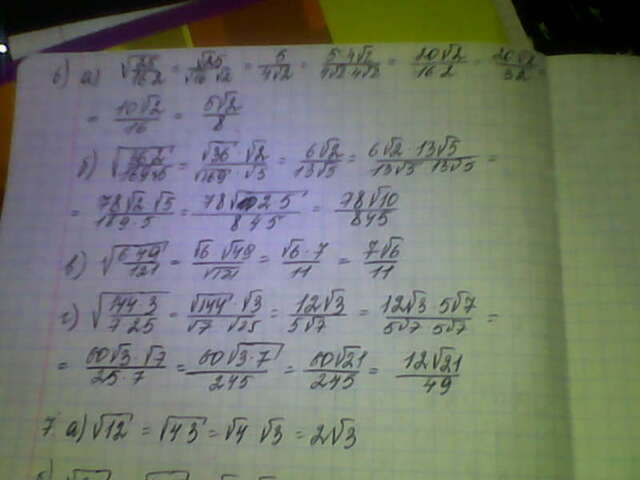 6) а) √(25/16·2) = √25/(√16·√2) = 5/(4√2) = (5·4√2)/(4√2·4√2) = 20√2/(16·2) = 20√2/32 =
= 10√2/16 = 5√2/8
б) √(36·2/169·5) = (√36·√2)/(√169·√5) = 6√2/13√5 = (6√2·13√5)/(13√5·13√5) =
= 78√2·√5/(169·5) = 78√(2·5)/845 = 78√10/845
в) √(6·49/121) = (√6·√49)/√121 = (√6·7)/11 = 7√6/11
г) √(144·3/7·25) = (√144·√3)/(√7·√25) = 12√3/5√7 = (12√3·5√7)/(5√7·5√7) =
= 60√3·√7/(25·7) = 60√(3·7)/245 = 60√21/245 = 12√21/49
7. а) √12 = √(4·3) = √4·√3 = 2√3